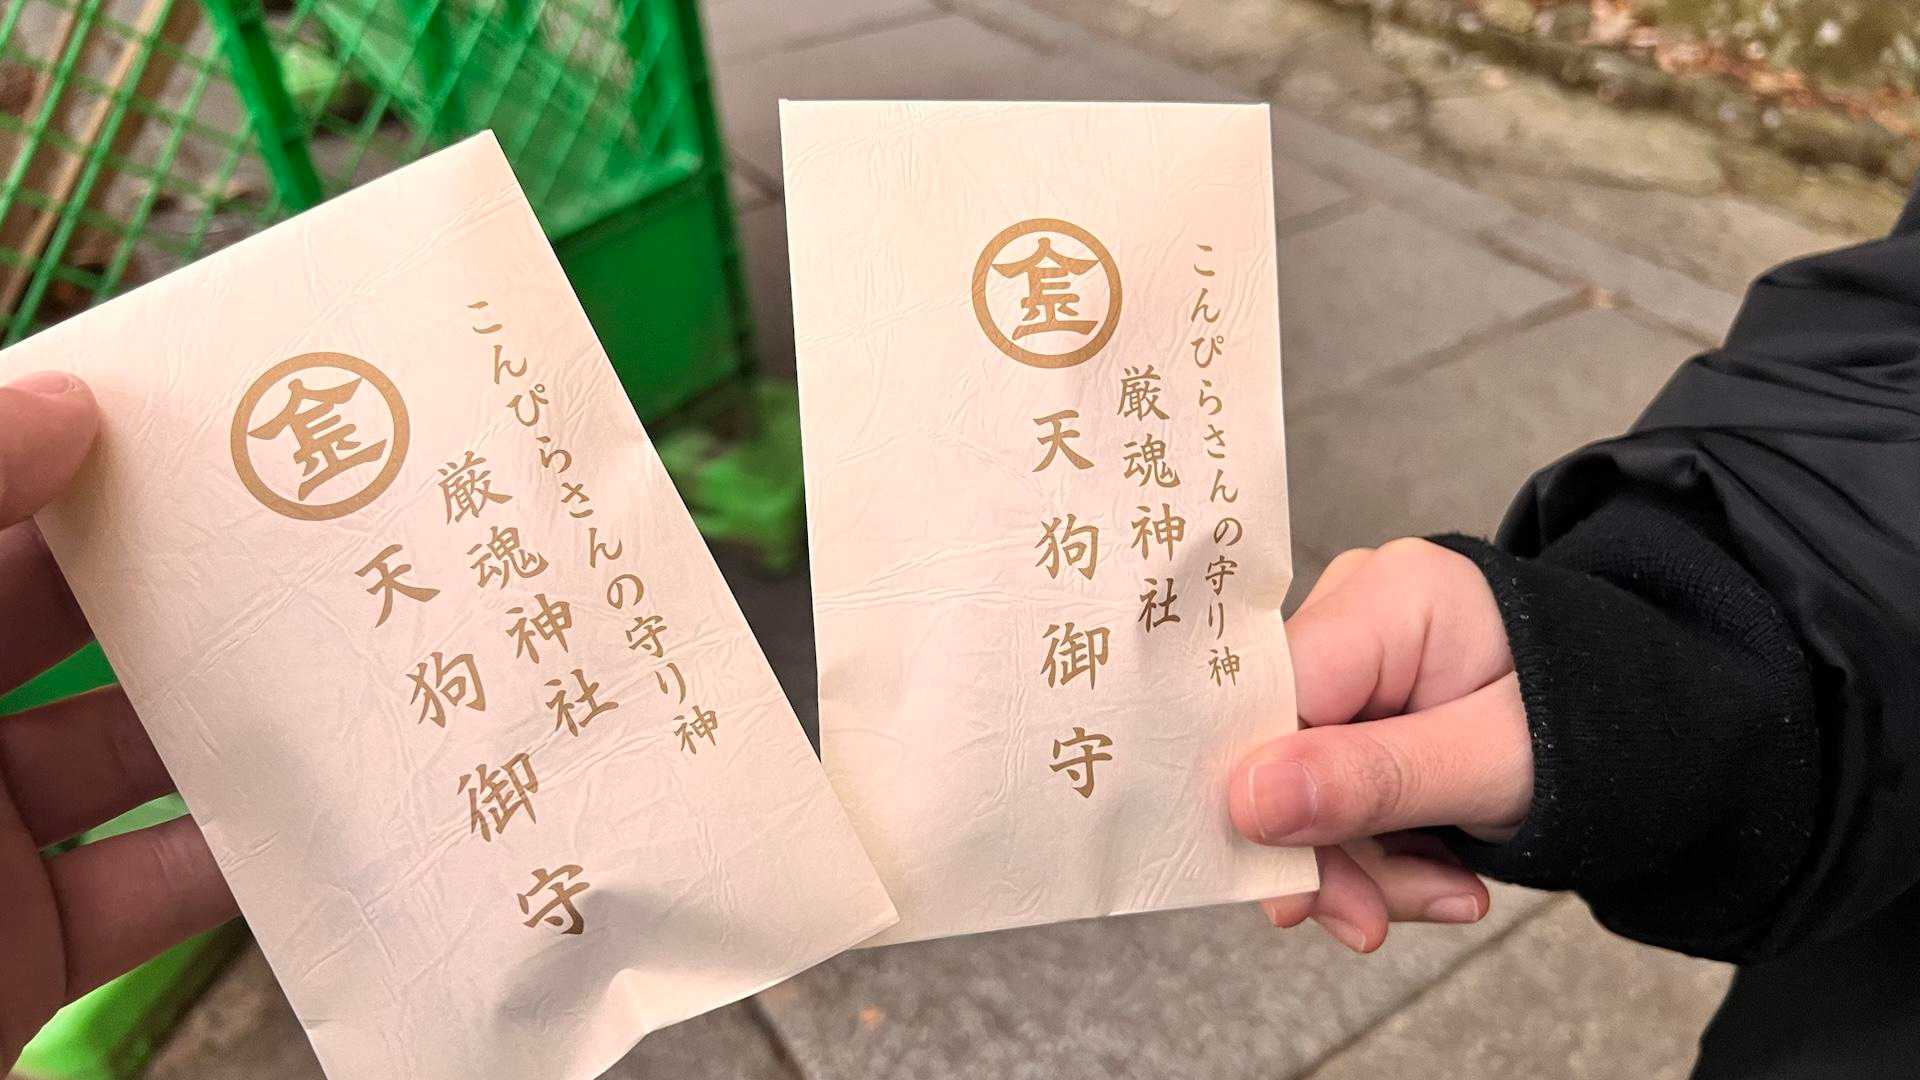 金
こんぴらさんの守り神
厳魂神社
天狗御守
金
こんぴらさんの守り神
厳魂神社
天狗御守